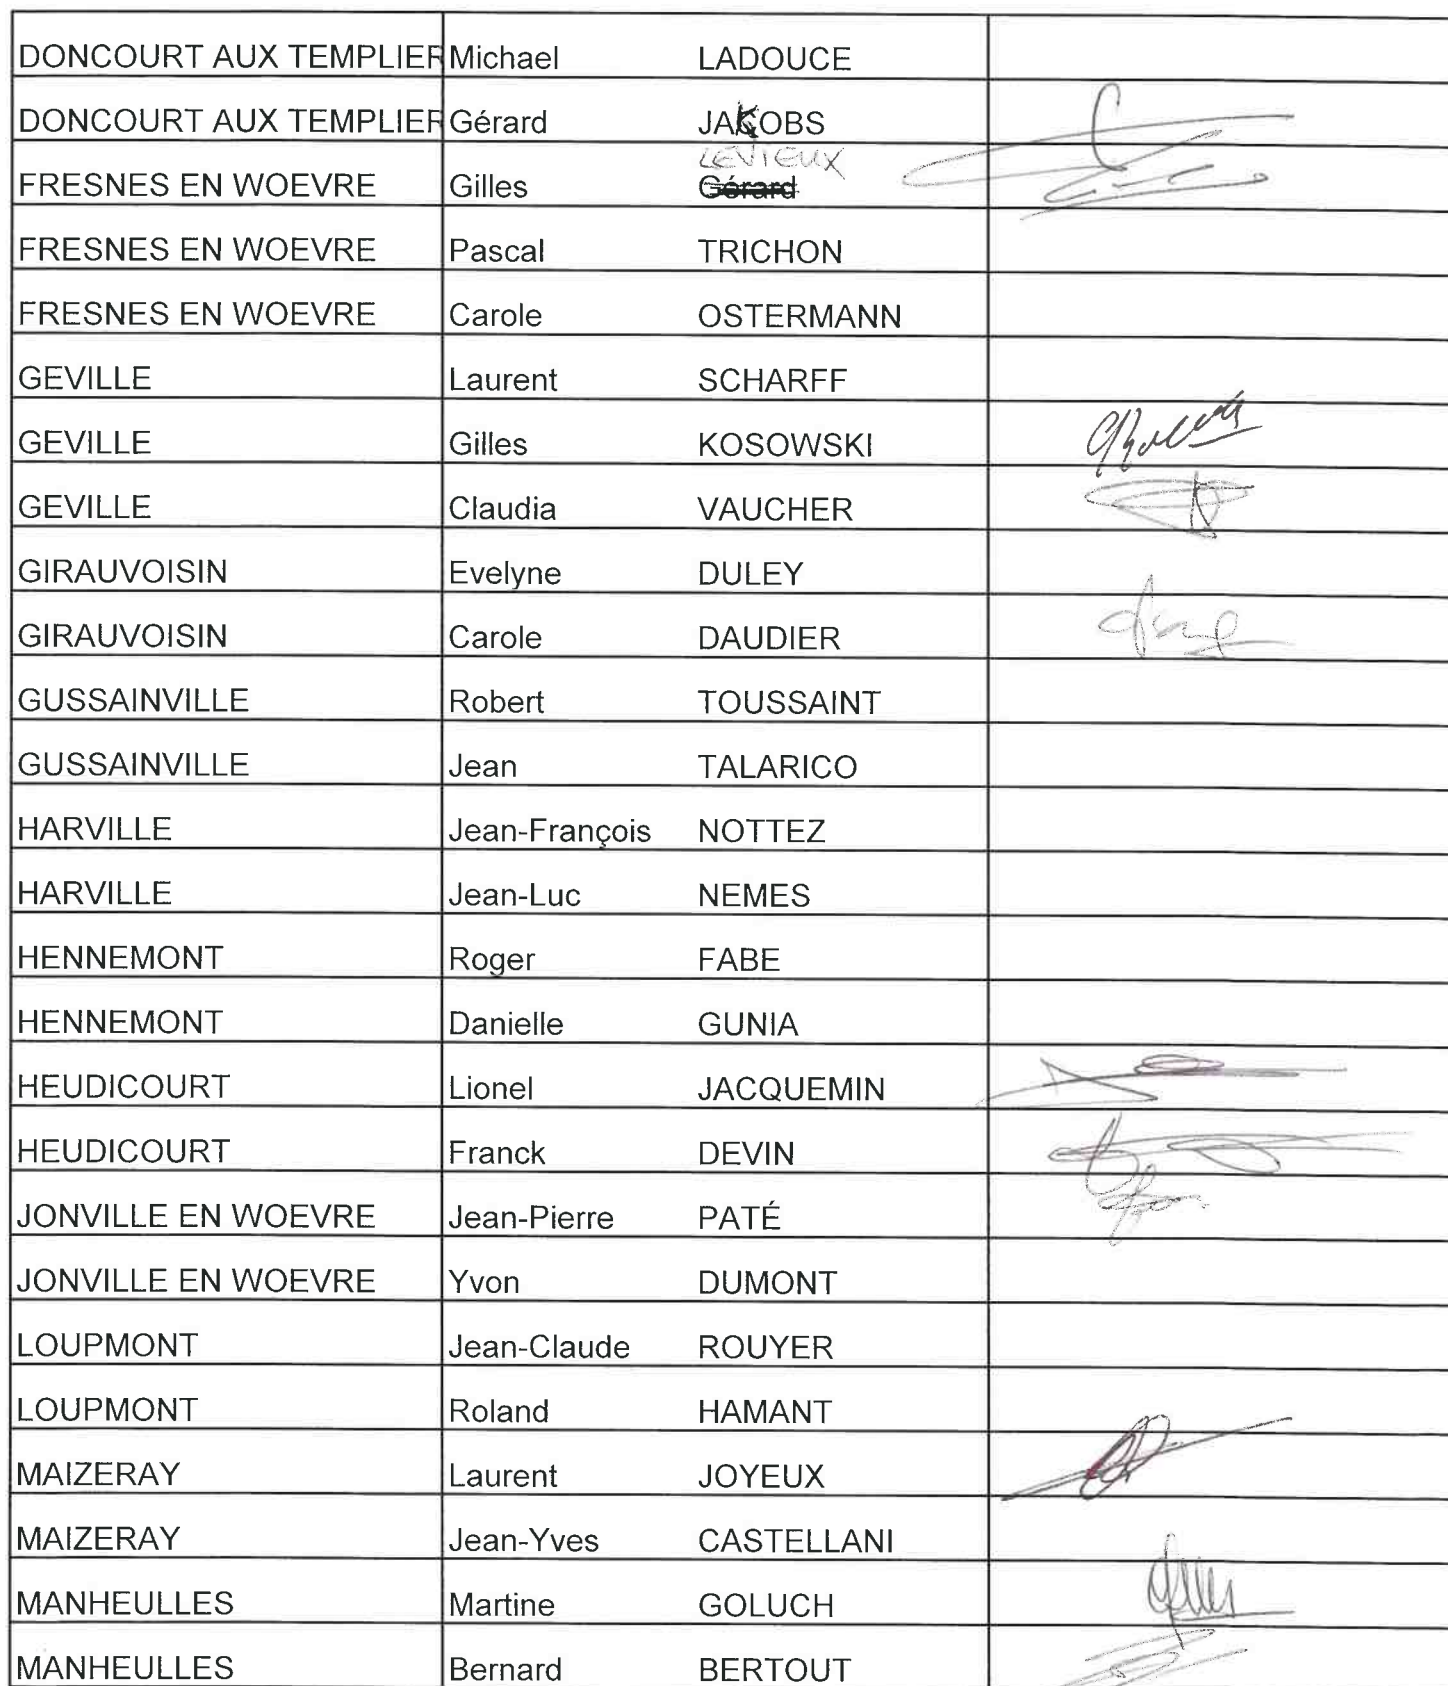 DONCOURT AUX TEMPLIER Michael LADOUCE
DONCOURT AUX TEMPLIER Gérard JAKOBS
LEVIEUX
FRESNES EN WOEVRE Gilles Gérard
FRESNES EN WOEVRE Pascal TRICHON
FRESNES EN WOEVRE Carole OSTERMANN
GEVILLE Laurent SCHARFF
GEVILLE Gilles KOSOWSKI
GEVILLE Claudia VAUCHER
GIRAUVOISIN Evelyne DULEY
GIRAUVOISIN Carole DAUDIER
GUSSAINVILLE Robert TOUSSAINT
GUSSAINVILLE Jean TALARICO
HARVILLE Jean-François NOTTEZ
HARVILLE Jean-Luc NEMES
HENNEMONT Roger FABE
HENNEMONT Danielle GUNIA
HEUDICOURT Lionel JACQUEMIN
HEUDICOURT Franck DEVIN
JONVILLE EN WOEVRE Jean-Pierre PATÉ
JONVILLE EN WOEVRE Yvon DUMONT
LOUPMONT Jean-Claude ROUYER
LOUPMONT Roland HAMANT
MAIZERAY Laurent JOYEUX
MAIZERAY Jean-Yves CASTELLANI
MANHEULLES Martine GOLUCH
MANHEULLES Bernard BERTOUT